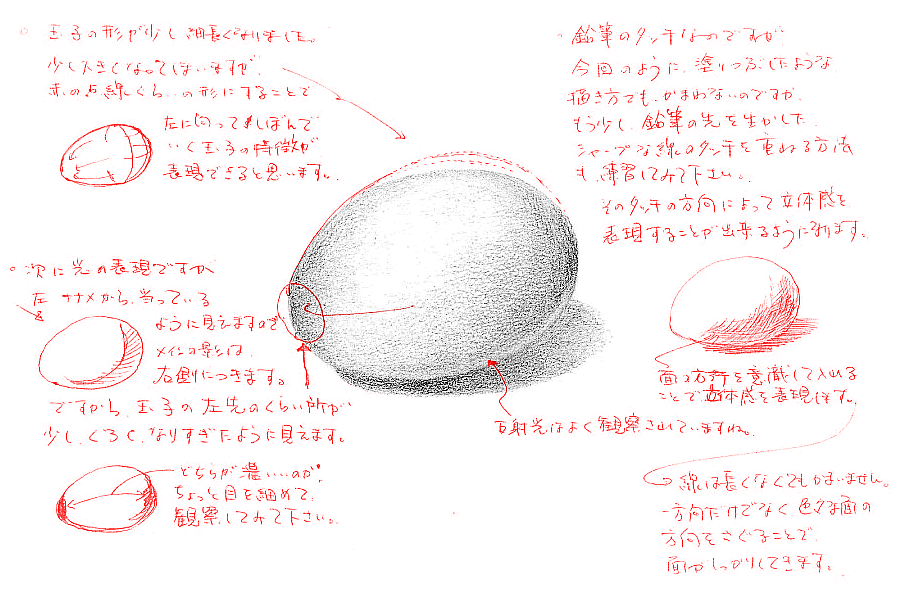 玉子の形が少し細長くなりました。
少し大きくなってしまいますが、
赤の点線くらいの形にすることで
左に向ってしぼんで
いく玉子の特徴が
表現できると思います。
次に光の表現ですが
左ナナメから、当っている
ように見えますので
メインの影は、
右側につきます。
ですから、玉子の左先のくらい所が
少し、くろく、なりすぎたように見えます。
どちらが濃いいのか、
ちょっと目を細めて、
観察してみて下さい。
反射光はよく観察されていますね。
鉛筆のタッチなのですが
今回のように、塗りつぶしたような
描き方でも、かまわないのですが、
もう少し、鉛筆の先を生かした、
シャープな線のタッチを重ねる方法
も、練習してみて下さい。
そのタッチの方向によって立体感を
表現することが出来るようになります。
面の方向を意識して入れる
ことで立体感を表現します。
線は長くなくてもかまいません。
一方向だけでなく、色々な面の
方向をさぐることで、
面がしっかりしてきます。